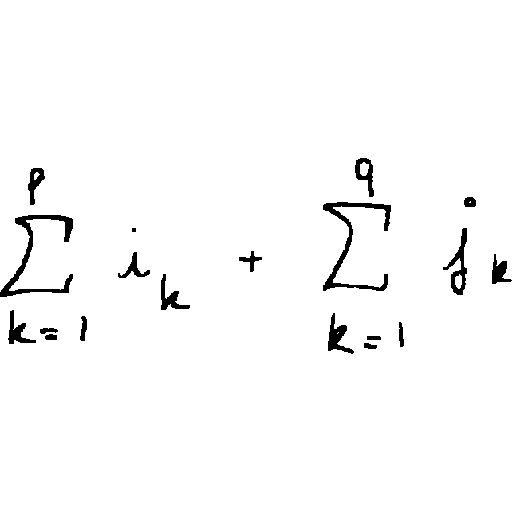 \sum_{k=1}^{p} i_k + \sum_{k=1}^{q} j_k